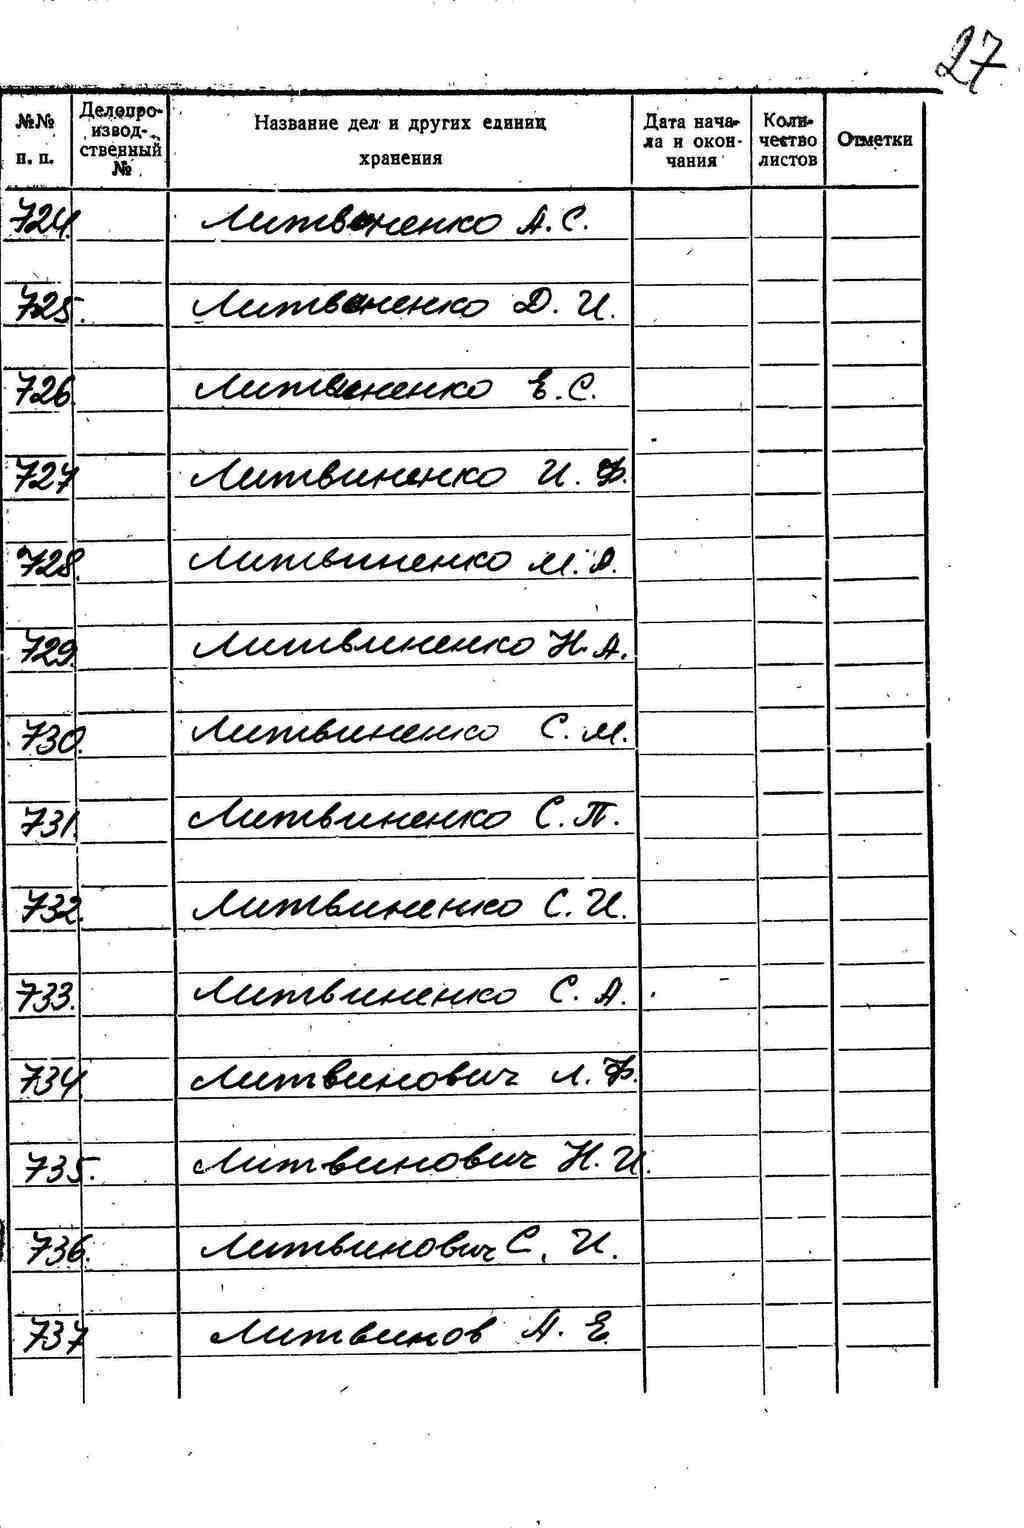 27
№№ п. п. Делопроизвод-ственный № Название дел и других единиц хранения Дата нача-ла и окон-чания Коли-чество листов Отметки
724. Литвиненко А. С.
725. Литвиненко Д. И.
726. Литвиненко Е. С.
727 Литвиненко И. Ф.
728. Литвиненко М. А.
729. Литвиненко Н. А.
730. Литвиненко С. М.
731. Литвиненко С. П.
732. Литвиненко С. И.
733. Литвиненко С. А.
734. Литвинович Л. Ф.
735. Литвинович Н. И.
736. Литвинович С. И.
737 Литвинов А. Е.